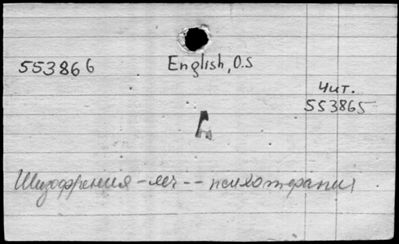 553866 English, O.S
Чит.
553865
А
Шизофрения - леч -- психотерапия